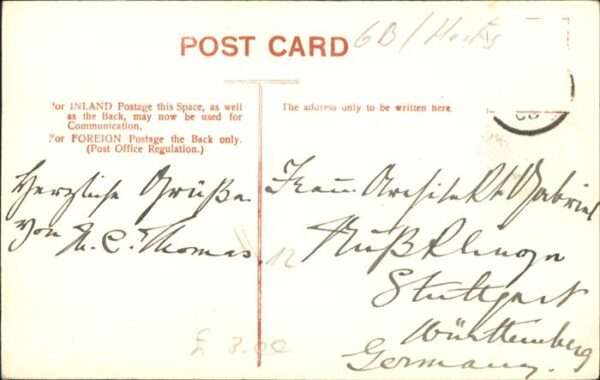 POST CARD
GB / Herts
For INLAND Postage this Space, as well
as the Back, may now be used for
Communication.
For FOREIGN Postage the Back only.
(Post Office Regulation.)
The address only to be written here
Herzliche Grüße
von N. C. Thomas
Frau Architekt Gabriel
Stuttgart
Württemberg
Germany.
12
£ 3.00